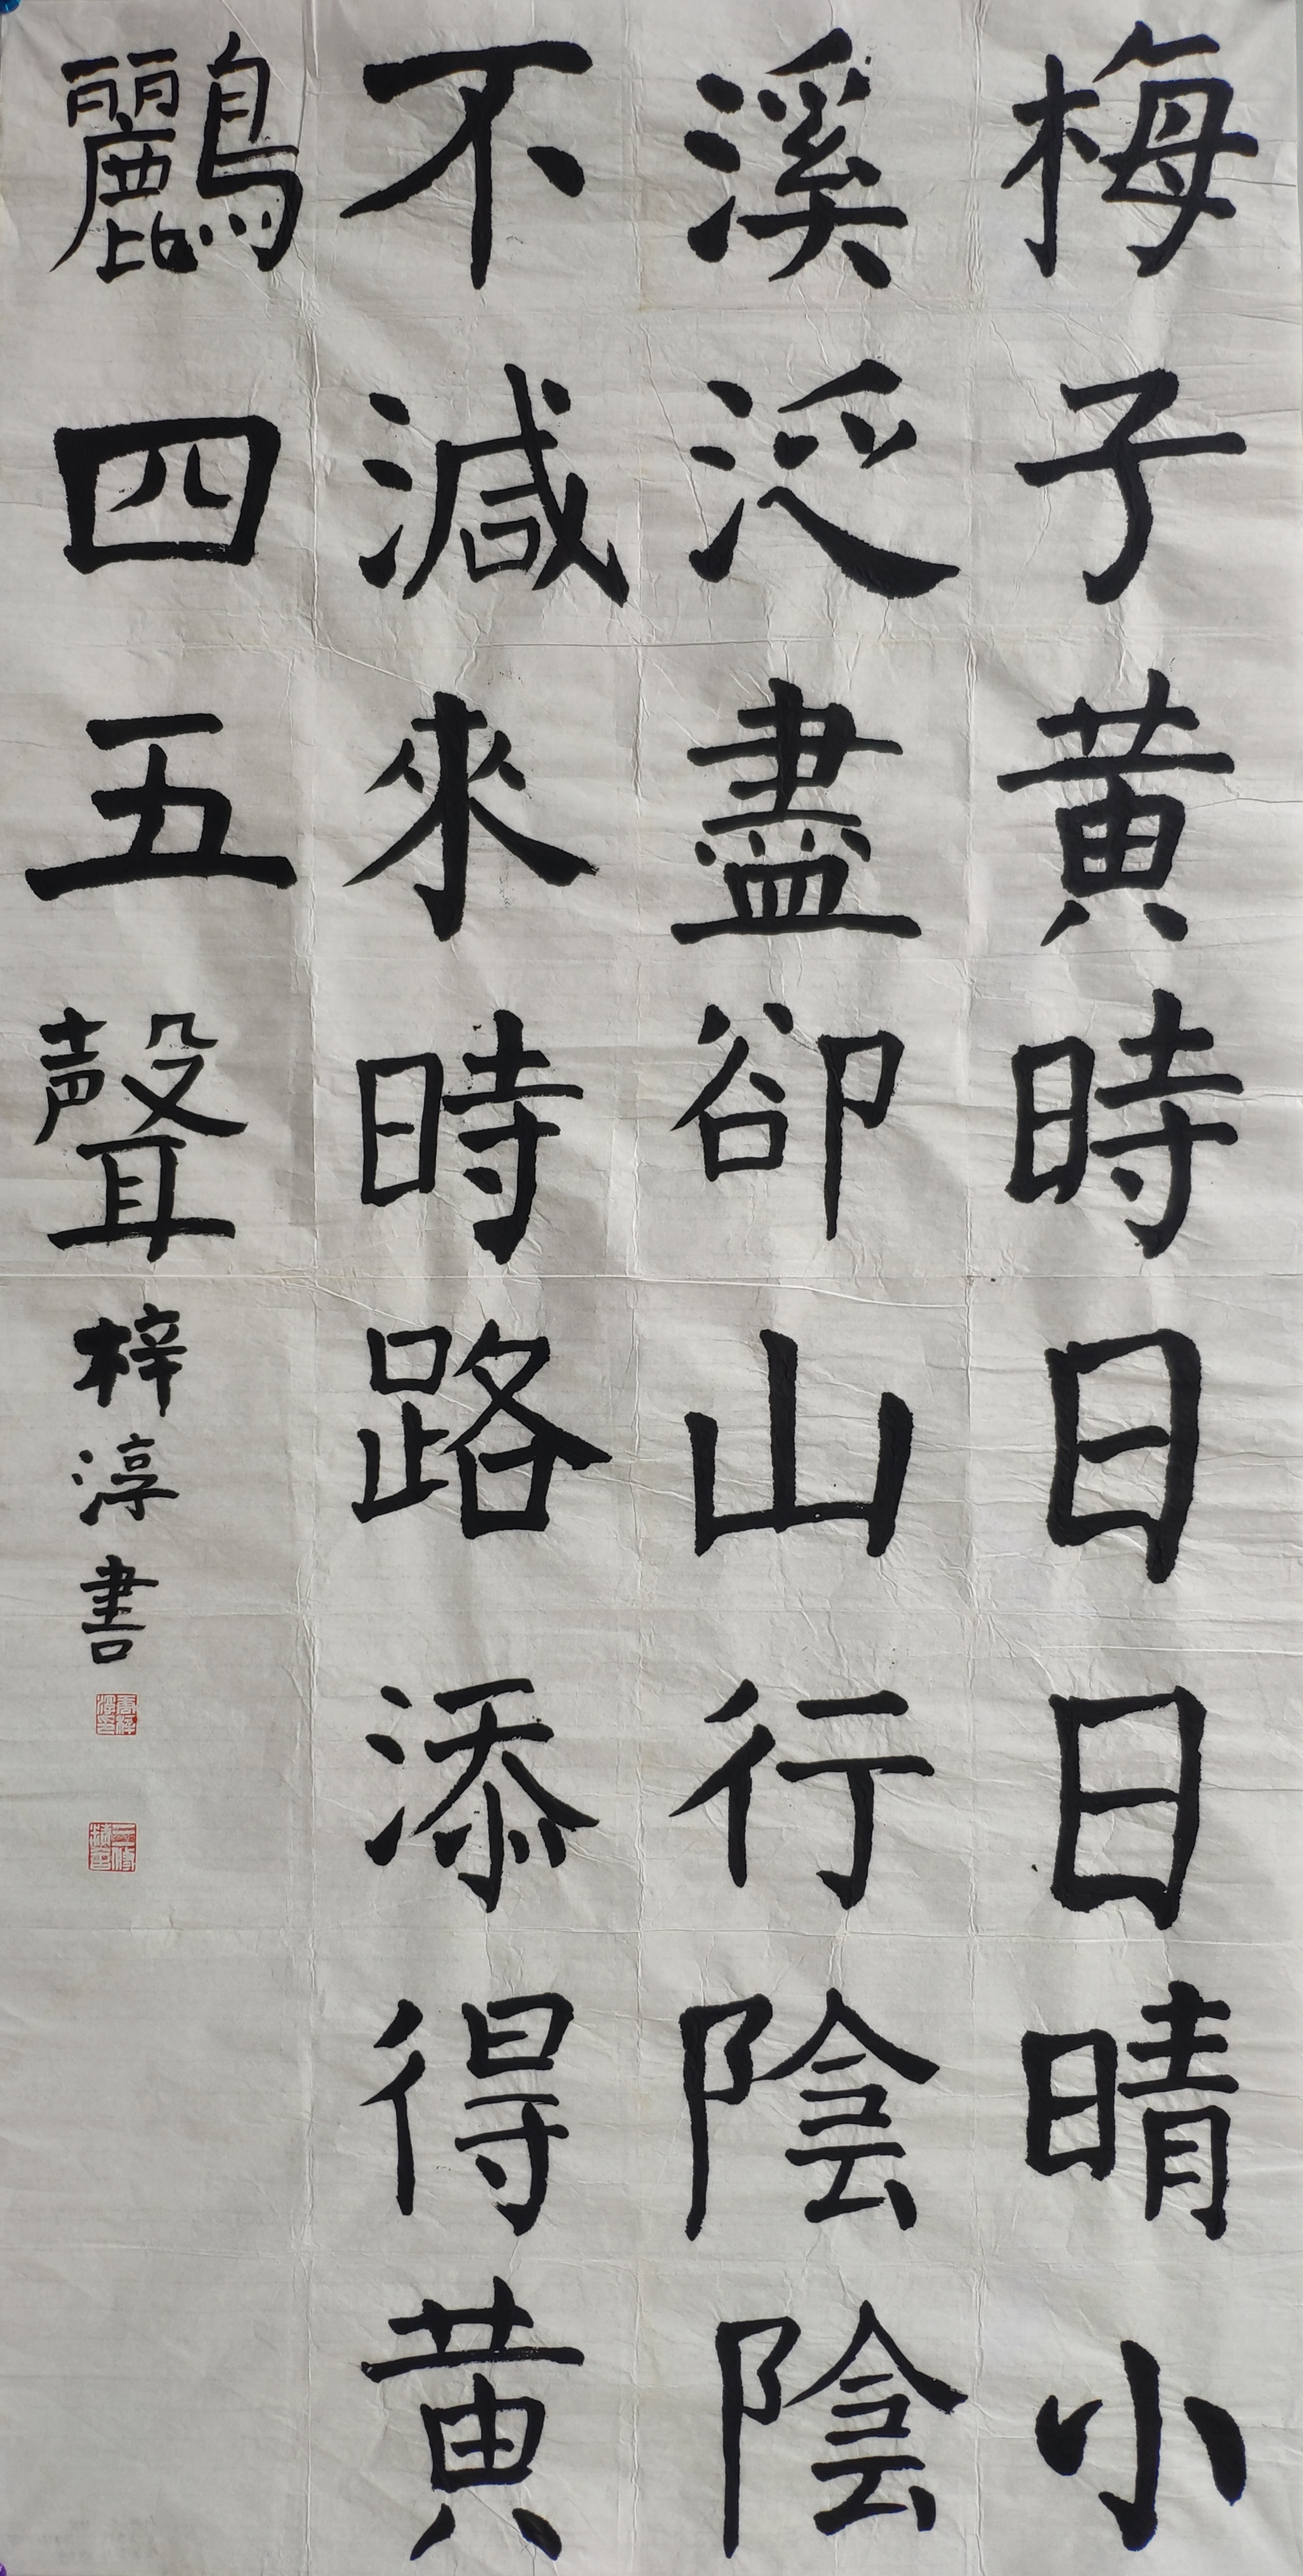 梅子黄時日日晴小
溪泛盡卻山行陰陰
不減來時路添得黄
鸝四五聲梓淳書